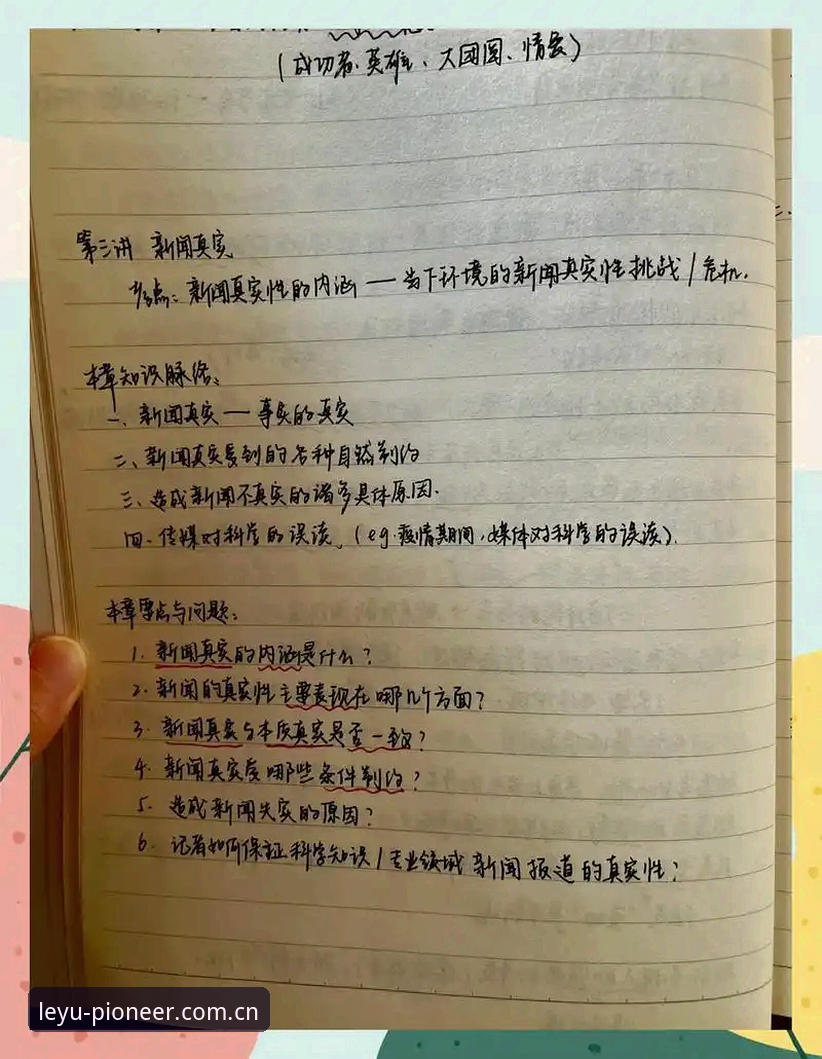 (成功者、英雄、大团圆、情景)
第三讲 新闻真实
考点：新闻真实性的内涵 — 当下环境的新闻真实性挑战/危机.
本章知识脉络：
一、新闻真实 — 事实的真实
二、新闻真实受到的各种自然制约
三、造成新闻不真实的诸多具体原因.
四、传媒对科学的误读。(eg.疫情期间,媒体对科学的误读).
本章要点与问题：
1. 新闻真实的内涵是什么？
2. 新闻的真实性主要表现在哪几个方面？
3. 新闻真实与本质真实是否一致？
4. 新闻真实受哪些条件制约？
5. 造成新闻失实的原因？
6. 记者如何保证科学知识/专业领域新闻报道的真实性？
leyu-pioneer.com.cn